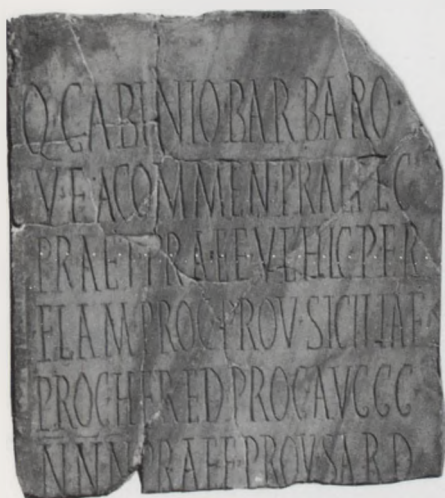 Q·GABINIO BARBARO
V·E·A COMMEN PRAEFEC
PRAET PRAEF VEHIC PER
FLAM PROC·PROV·SICILIAE
PROC HERED PROC AVGGG
NNN PRAEF PROV SARD